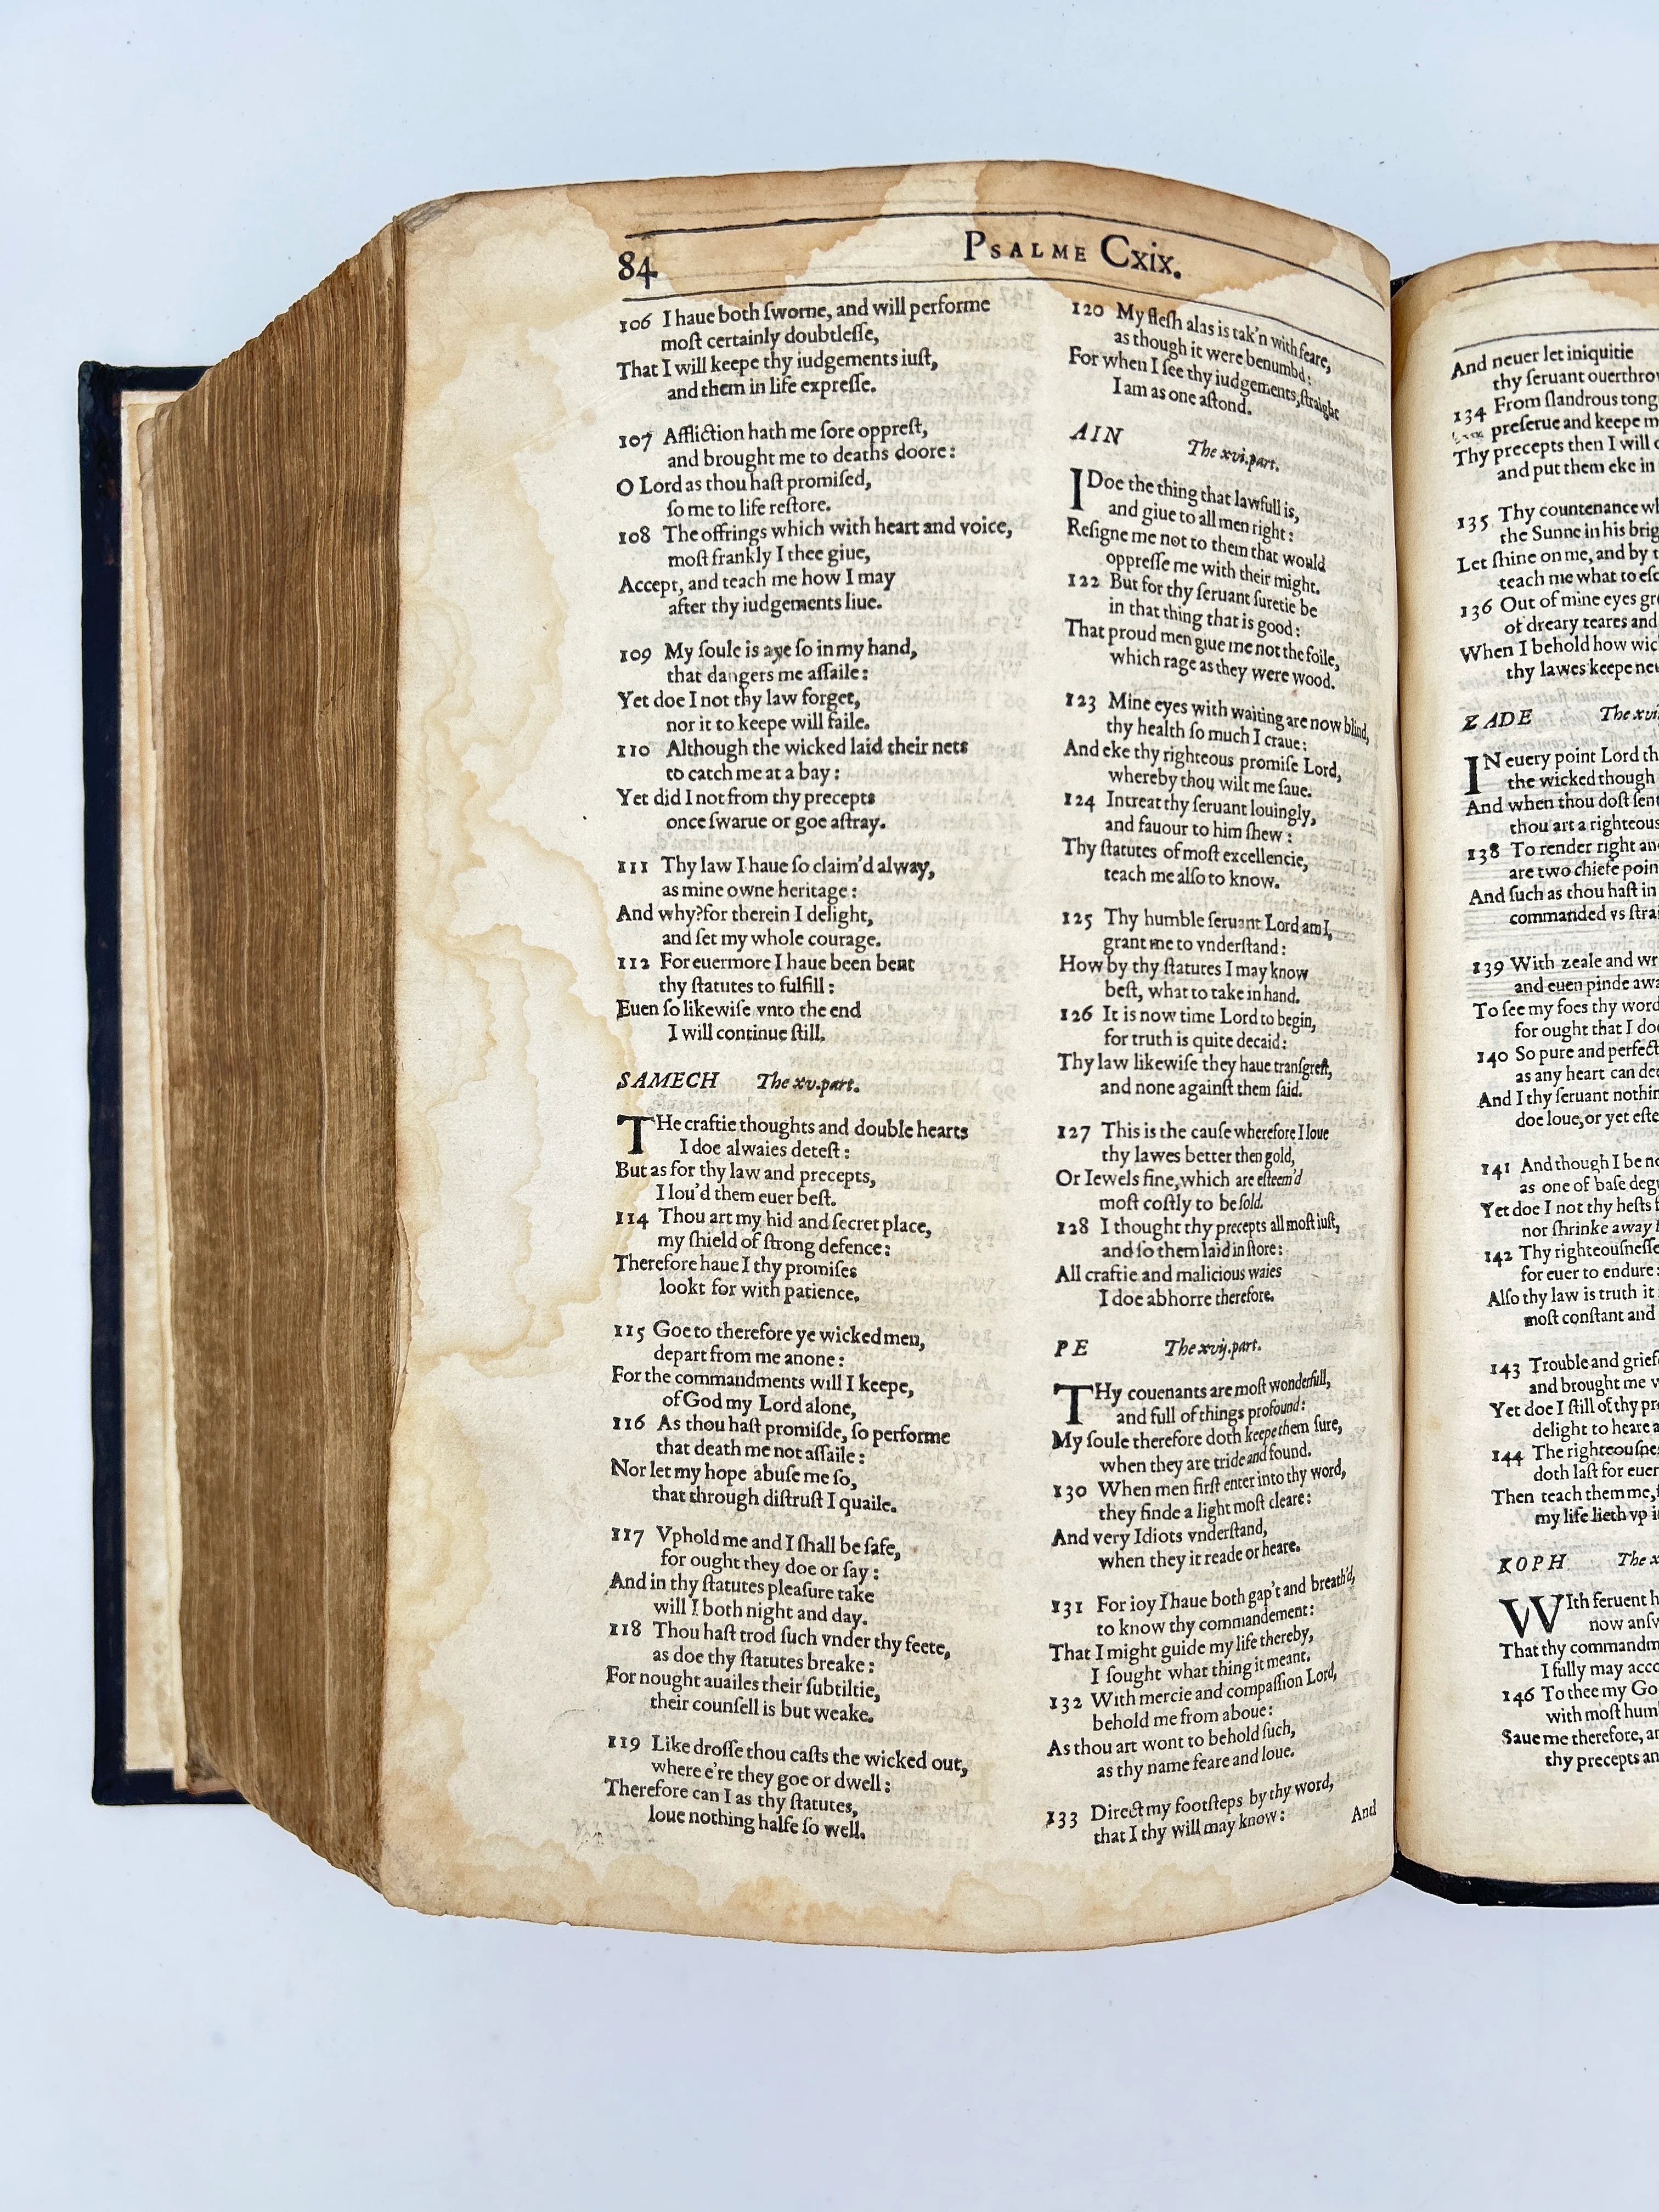 84
PSALME Cxix.
106 I haue both ſworne, and will performe
moſt certainly doubtleſſe,
That I will keepe thy iudgements iuſt,
and them in life expreſſe.
107 Affliction hath me ſore oppreſt,
and brought me to deaths doore:
O Lord as thou haſt promiſed,
ſo me to life reſtore.
108 The offrings which with heart and voice,
moſt frankly I thee giue,
Accept, and teach me how I may
after thy iudgements liue.
109 My ſoule is aye ſo in my hand,
that dangers me aſſaile:
Yet doe I not thy law forget,
nor it to keepe will faile.
110 Although the wicked laid their nets
to catch me at a bay:
Yet did I not from thy precepts
once ſwarue or goe aſtray.
111 Thy law I haue ſo claim'd alway,
as mine owne heritage:
And why? for therein I delight,
and ſet my whole courage.
112 For euermore I haue been bent
thy ſtatutes to fulfill:
Euen ſo likewiſe vnto the end
I will continue ſtill.
SAMECH The xv.part.
THe craftie thoughts and double hearts
I doe alwaies deteſt:
But as for thy law and precepts,
I lou'd them euer beſt.
114 Thou art my hid and ſecret place,
my ſhield of ſtrong defence:
Therefore haue I thy promiſes
lookt for with patience.
115 Goe to therefore ye wicked men,
depart from me anone:
For the commandments will I keepe,
of God my Lord alone,
116 As thou haſt promiſde, ſo performe
that death me not aſſaile:
Nor let my hope abuſe me ſo,
that through diſtruſt I quaile.
117 Vphold me and I ſhall be ſafe,
for ought they doe or ſay:
And in thy ſtatutes pleaſure take
will I both night and day.
118 Thou haſt trod ſuch vnder thy feete,
as doe thy ſtatutes breake:
For nought auailes their ſubtiltie,
their counſell is but weake.
119 Like droſſe thou caſts the wicked out,
where e're they goe or dwell:
Therefore can I as thy ſtatutes,
loue nothing halfe ſo well.
120 My fleſh alas is tak'n with feare,
as though it were benumbd:
For when I ſee thy iudgements, ſtraight
I am as one aſtond.
AIN The xvi.part.
I Doe the thing that lawfull is,
and giue to all men right:
Reſigne me not to them that would
oppreſſe me with their might.
122 But for thy ſeruant ſuretie be
in that thing that is good:
That proud men giue me not the foile,
which rage as they were wood.
123 Mine eyes with waiting are now blind,
thy health ſo much I craue:
And eke thy righteous promiſe Lord,
whereby thou wilt me ſaue.
124 Intreat thy ſeruant louingly,
and fauour to him ſhew:
Thy ſtatutes of moſt excellencie,
teach me alſo to know.
125 Thy humble ſeruant Lord am I,
grant me to vnderſtand:
How by thy ſtatutes I may know
beſt, what to take in hand.
126 It is now time Lord to begin,
for truth is quite decaid:
Thy law likewiſe they haue tranſgreſt,
and none againſt them ſaid.
127 This is the cauſe wherefore I loue
thy lawes better then gold,
Or Iewels fine, which are eſteem'd
moſt coſtly to be ſold.
128 I thought thy precepts all moſt iuſt,
and ſo them laid in ſtore:
All craftie and malicious waies
I doe abhorre therefore.
PE The xvij.part.
THy couenants are moſt wonderfull,
and full of things profound:
My ſoule therefore doth keepe them ſure,
when they are tride and found.
130 When men firſt enter into thy word,
they finde a light moſt cleare:
And very Idiots vnderſtand,
when they it reade or heare.
131 For ioy I haue both gap't and breath'd,
to know thy commandement:
That I might guide my life thereby,
I ſought what thing it meant.
132 With mercie and compaſſion Lord,
behold me from aboue:
As thou art wont to behold ſuch,
as thy name feare and loue.
133 Direct my footſteps by thy word,
that I thy will may know:
And
And neuer let iniquitie
thy ſeruant ouerthro
134 From ſlandrous tong
preſerue and keepe m
Thy precepts then I will
and put them eke in
135 Thy countenance wh
the Sunne in his brig
Let ſhine on me, and by t
teach me what to eſc
136 Out of mine eyes gr
of dreary teares and
When I behold how wic
thy lawes keepe neu
ZADE The xvi
IN euery point Lord th
the wicked though
And when thou doſt ſent
thou art a righteous
138 To render right an
are two chiefe poin
And ſuch as thou haſt in
commanded vs ſtrai
139 With zeale and wr
and euen pinde awa
To ſee my foes thy word
for ought that I doe
140 So pure and perfect
as any heart can dee
And I thy ſeruant nothin
doe loue, or yet eſte
141 And though I be no
as one of baſe degr
Yet doe I not thy heſts f
nor ſhrinke away f
142 Thy righteouſneſſe
for euer to endure:
Alſo thy law is truth it
moſt conſtant and
143 Trouble and grief
and brought me
Yet doe I ſtill of thy pr
delight to heare a
144 The righteouſne
doth laſt for euer
Then teach them me,
my life lieth vp i
KOPH The x
WIth feruent h
now anſw
That thy commandm
I fully may acco
146 To thee my Go
with moſt hum
Saue me therefore, an
thy precepts an